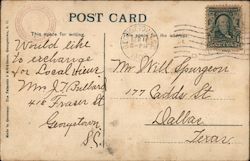 POST CARD
This space for writing.
This space for the address.
Would like
to exchange
for Local View
Mrs J. T. Ballard
418 Fraser St
Georgetown
S.C.
Mr. Will Spurgeon
177 Caddo St
Dallas
Texas.